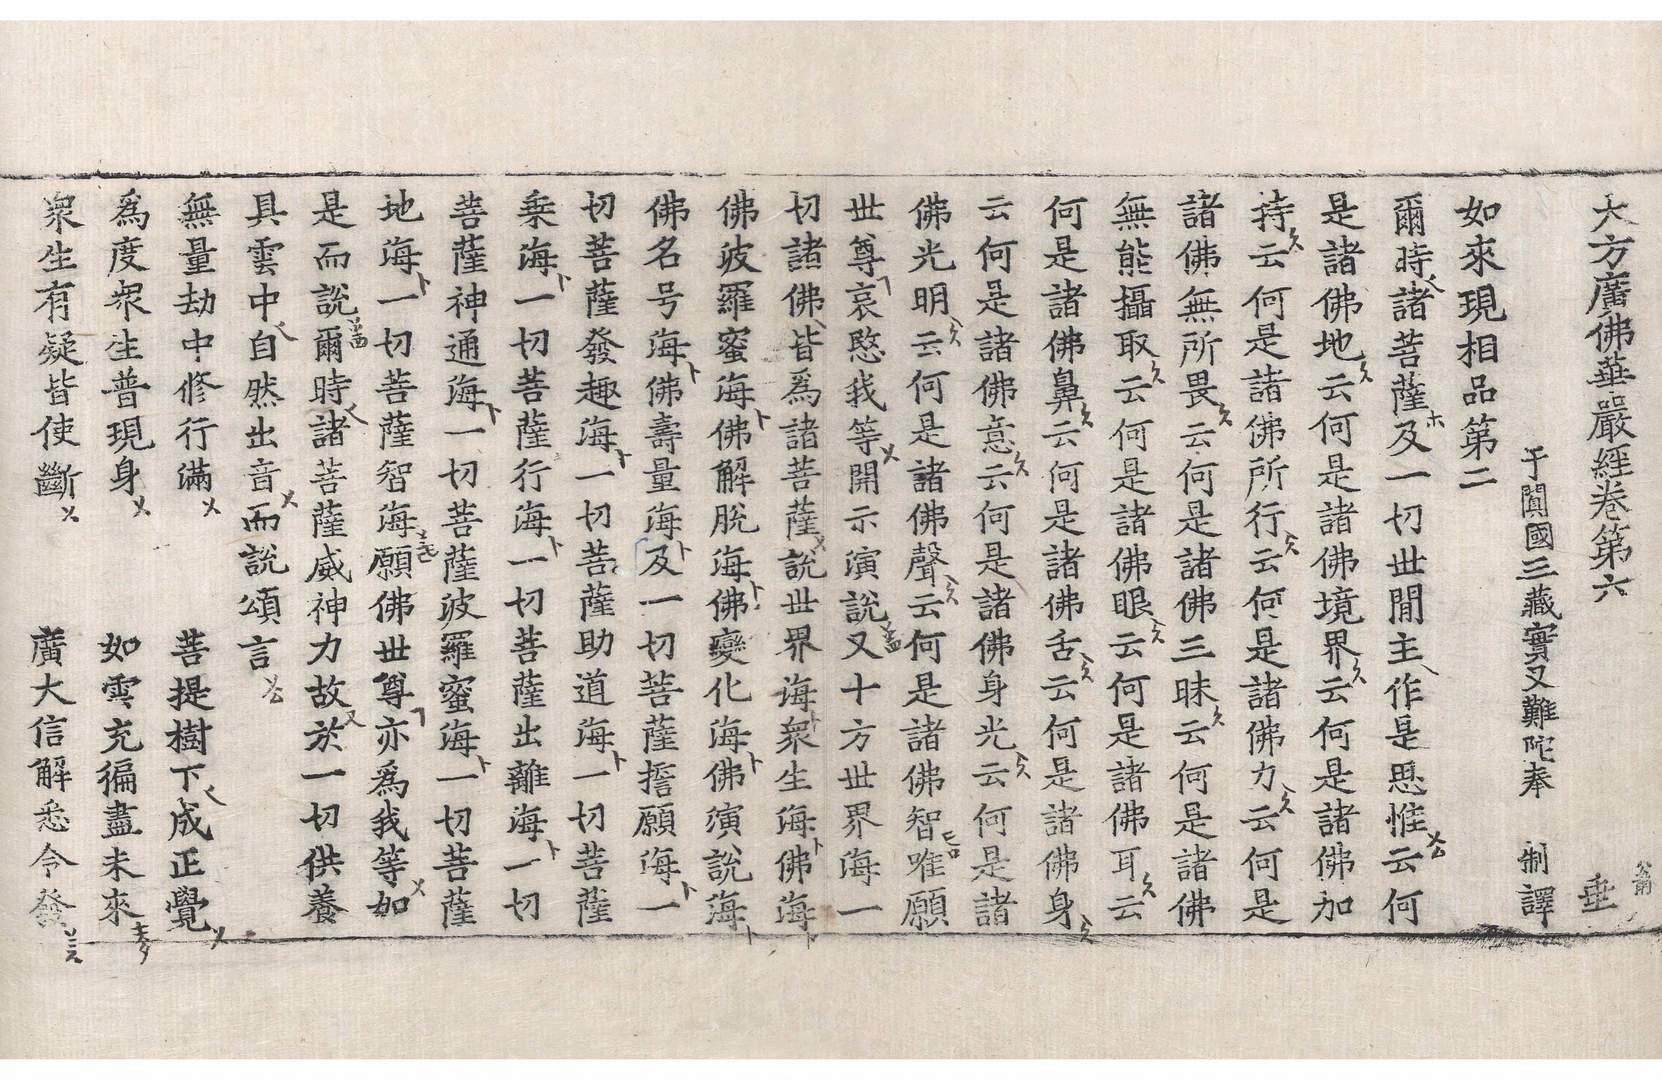 大方廣佛華嚴經卷第六 垂
于闐國三藏實叉難陀奉 制譯
如來現相品第二
爾時諸菩薩及一切世閒主作是思惟云何
是諸佛地云何是諸佛境界云何是諸佛加
持云何是諸佛所行云何是諸佛力云何是
諸佛無所畏云何是諸佛三昧云何是諸佛
無能攝取云何是諸佛眼云何是諸佛耳云
何是諸佛鼻云何是諸佛舌云何是諸佛身
云何是諸佛意云何是諸佛身光云何是諸
佛光明云何是諸佛聲云何是諸佛智唯願
世尊哀愍我等開示演說又十方世界海一
切諸佛皆爲諸菩薩說世界海衆生海佛海
佛波羅蜜海佛解脫海佛變化海佛演說海
佛名号海佛壽量海及一切菩薩誓願海一
切菩薩發趣海一切菩薩助道海一切菩薩
乘海一切菩薩行海一切菩薩出離海一切
菩薩神通海一切菩薩波羅蜜海一切菩薩
地海一切菩薩智海願佛世尊亦爲我等如
是而說爾時諸菩薩威神力故於一切供養
具雲中自然出音而說頌言
無量劫中修行滿 菩提樹下成正覺
爲度衆生普現身 如雲充徧盡未來
衆生有疑皆使斷 廣大信解悉令發